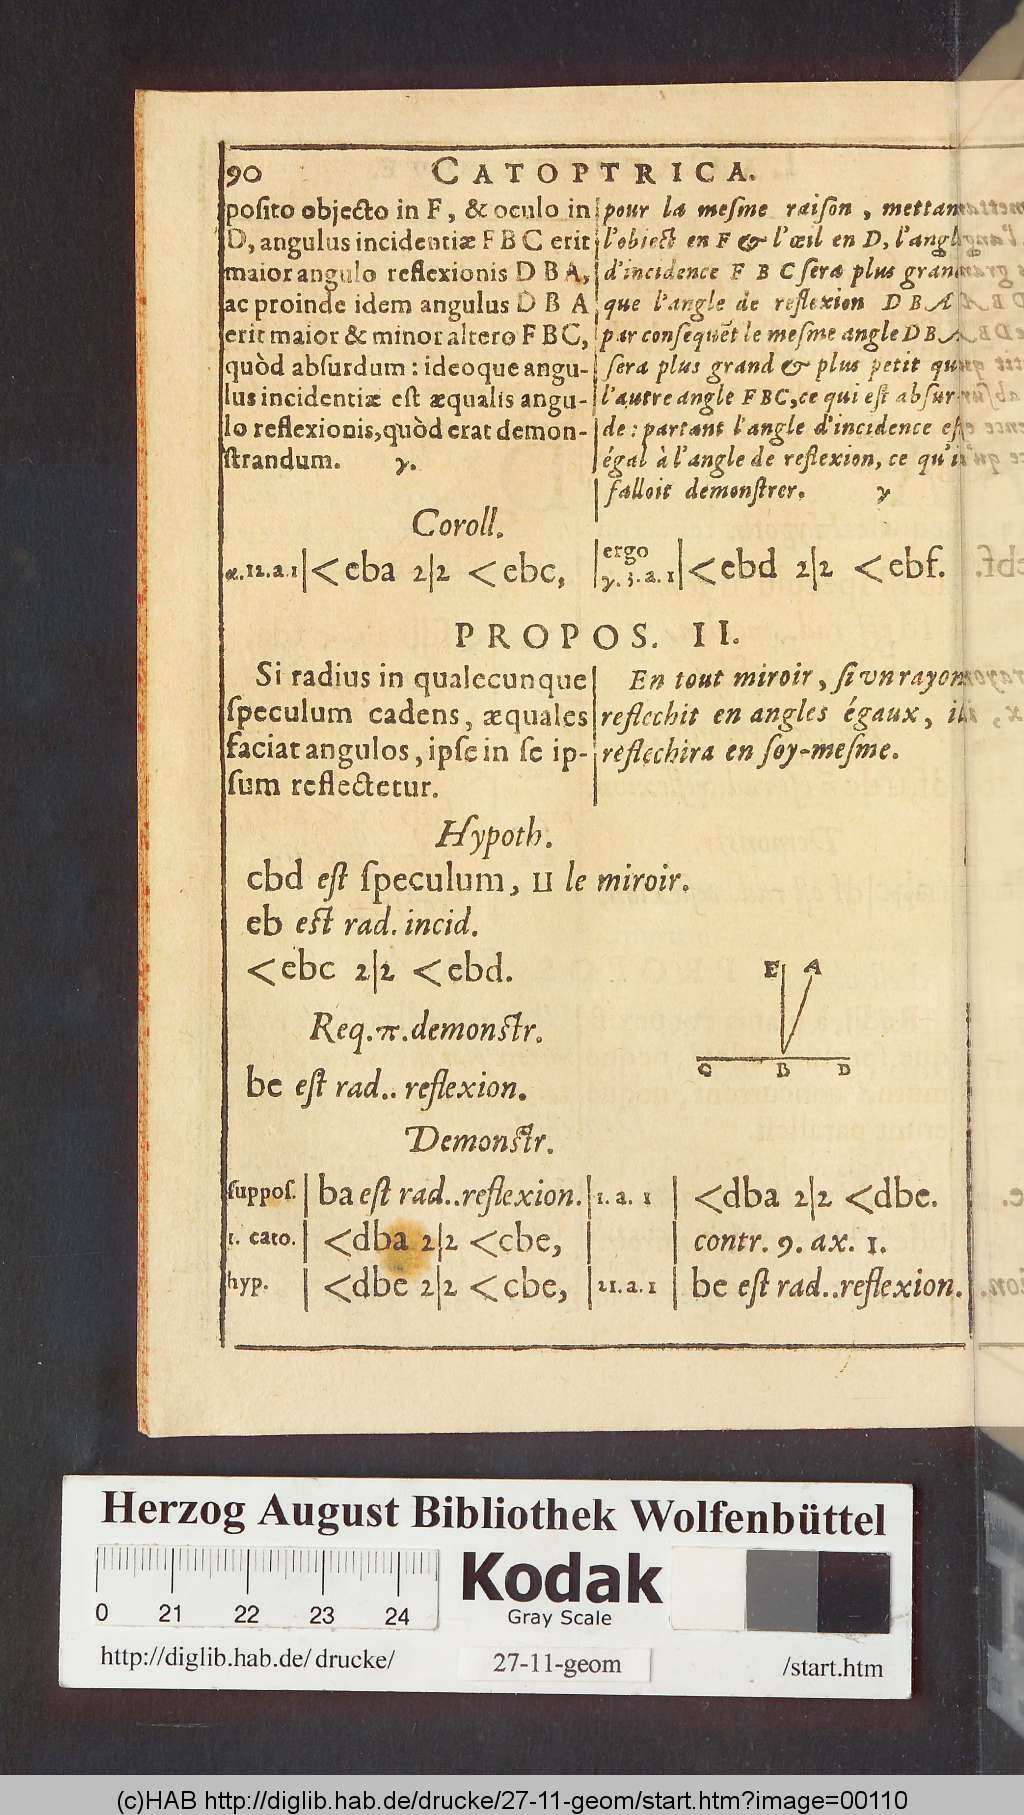 90 CATOPTRICA.
posito objecto in F, & oculo in
D, angulus incidentiæ F B C erit
maior angulo reflexionis D B A,
ac proinde idem angulus D B A
erit maior & minor altero F BC,
quòd absurdum : ideoque angu-
lus incidentiæ est æqualis angu-
lo reflexionis, quòd erat demon-
strandum. γ.
pour la mesme raison, mettant
l'obiect en F & l'œil en D, l'angle
d'incidence F B C sera plus grand
que l'angle de reflexion D B A
par consequẽt le mesme angle D B A
sera plus grand & plus petit que
l'autre angle FBC, ce qui est absur-
de : partant l'angle d'incidence est
égal à l'angle de reflexion, ce qu'il
falloit demonstrer. γ
Coroll.
α.12.a.1 | <eba 2|2 <ebc, | ergo γ.3.a.1 | <ebd 2|2 <ebf.
PROPOS. II.
Si radius in qualecunque
speculum cadens, æquales
faciat angulos, ipse in se ip-
sum reflectetur.
En tout miroir, si vn rayon
reflechit en angles égaux, il
reflechira en soy-mesme.
Hypoth.
cbd est speculum, ⊔ le miroir.
eb est rad. incid.
<ebc 2|2 <ebd.
Req. π. demonstr.
be est rad.. reflexion.
E A
C B D
Demonstr.
suppos. | ba est rad..reflexion. | 1. a. 1 | <dba 2|2 <dbe.
1. cato. | <dba 2|2 <cbe, | | contr. 9. ax. 1.
hyp. | <dbe 2|2 <cbe, | 21.a.1 | be est rad..reflexion.
Herzog August Bibliothek Wolfenbüttel
0 21 22 23 24
Kodak
Gray Scale
http://diglib.hab.de/ drucke/ 27-11-geom /start.htm
(c)HAB http://diglib.hab.de/drucke/27-11-geom/start.htm?image=00110